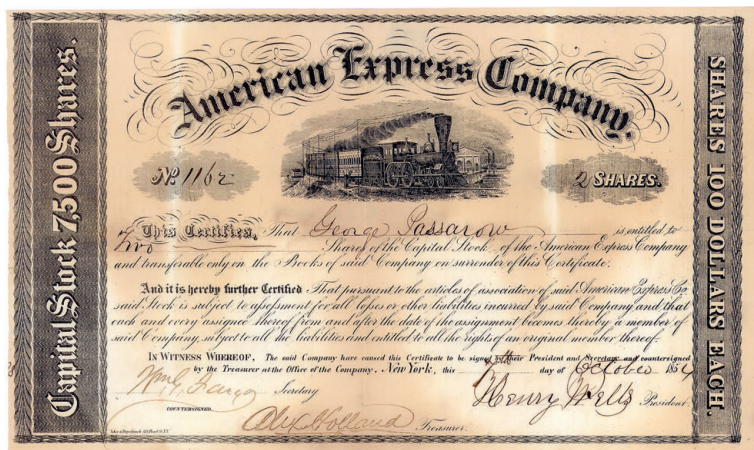 American Express Company.
Capital Stock 7,500 Shares.
SHARES 100 DOLLARS EACH.
No. 1162
2 SHARES.
This Certifies, That George Passarow is entitled to
Two Shares of the Capital Stock of the American Express Company
and transferable only on the Books of said Company on surrender of this Certificate.
And it is hereby further Certified That pursuant to the articles of association of said American Express Co.
said Stock is subject to assessment for all losses or other liabilities incurred by said Company and that
each and every assignee thereof from and after the date of the assignment becomes thereby a member of
said Company, subject to all the liabilities and entitled to all the rights of an original member thereof.
IN WITNESS WHEREOF, The said Company have caused this Certificate to be signed by their President and Secretary and countersigned
by the Treasurer at the Office of the Company, New York, this day of October 1854
Wm G. Fargo Secretary
Henry Wells President.
COUNTERSIGNED.
Alex Holland Treasurer.